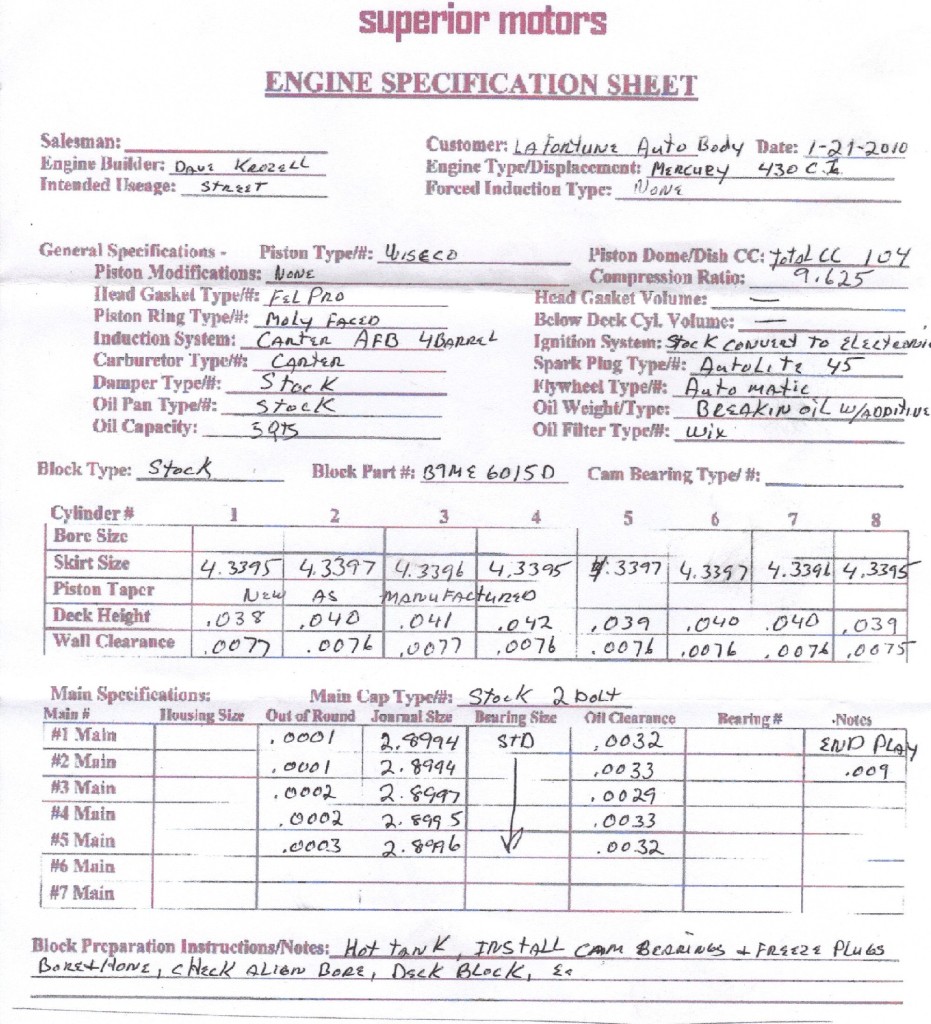 superior motors
ENGINE SPECIFICATION SHEET
Salesman:
Customer: LAFORTUNE Auto Body Date: 1-21-2010
Engine Builder: DAVE KROZELL
Engine Type/Displacement: MERCURY 430 C.I.
Intended Useage: STREET
Forced Induction Type: NONE
General Specifications - Piston Type/#: WISECO Piston Dome/Dish CC: total CC 104
Piston Modifications: NONE Compression Ratio: 9.625
Head Gasket Type/#: FEL PRO Head Gasket Volume: —
Piston Ring Type/#: MOLY FACED Below Deck Cyl. Volume: —
Induction System: CARTER AFB 4BARREL Ignition System: Stock CONVERT TO ELECTRONIC
Carburetor Type/#: CARTER Spark Plug Type/#: AutoLite 45
Damper Type/#: Stock Flywheel Type/#: Automatic
Oil Pan Type/#: Stock Oil Weight/Type: BREAKIN OIL W/ADDITIVE
Oil Capacity: 5 QTS Oil Filter Type/#: WIX
Block Type: Stock Block Part #: B9ME 6015D Cam Bearing Type/ #:
Cylinder # 1 2 3 4 5 6 7 8
Bore Size
Skirt Size 4.3395 4.3397 4.3396 4.3395 4.3397 4.3397 4.3396 4.3395
Piston Taper NEW AS MANUFACTURED
Deck Height .038 .040 .041 .042 .039 .040 .040 .039
Wall Clearance .0077 .0076 .0077 .0076 .0076 .0076 .0076 .0075
Main Specifications: Main Cap Type/#: Stock 2 Bolt
Main # Housing Size Out of Round Journal Size Bearing Size Oil Clearance Bearing # Notes
#1 Main .0001 2.8994 STD .0032 END PLAY
#2 Main .0001 2.8994 .0033 .009
#3 Main .0002 2.8997 .0029
#4 Main .0002 2.8995 .0033
#5 Main .0003 2.8996 .0032
#6 Main
#7 Main
Block Preparation Instructions/Notes: Hot tank, INSTALL CAM BEARINGS + FREEZE PLUGS
BORE+HONE, CHECK ALIGN BORE, DECK BLOCK,